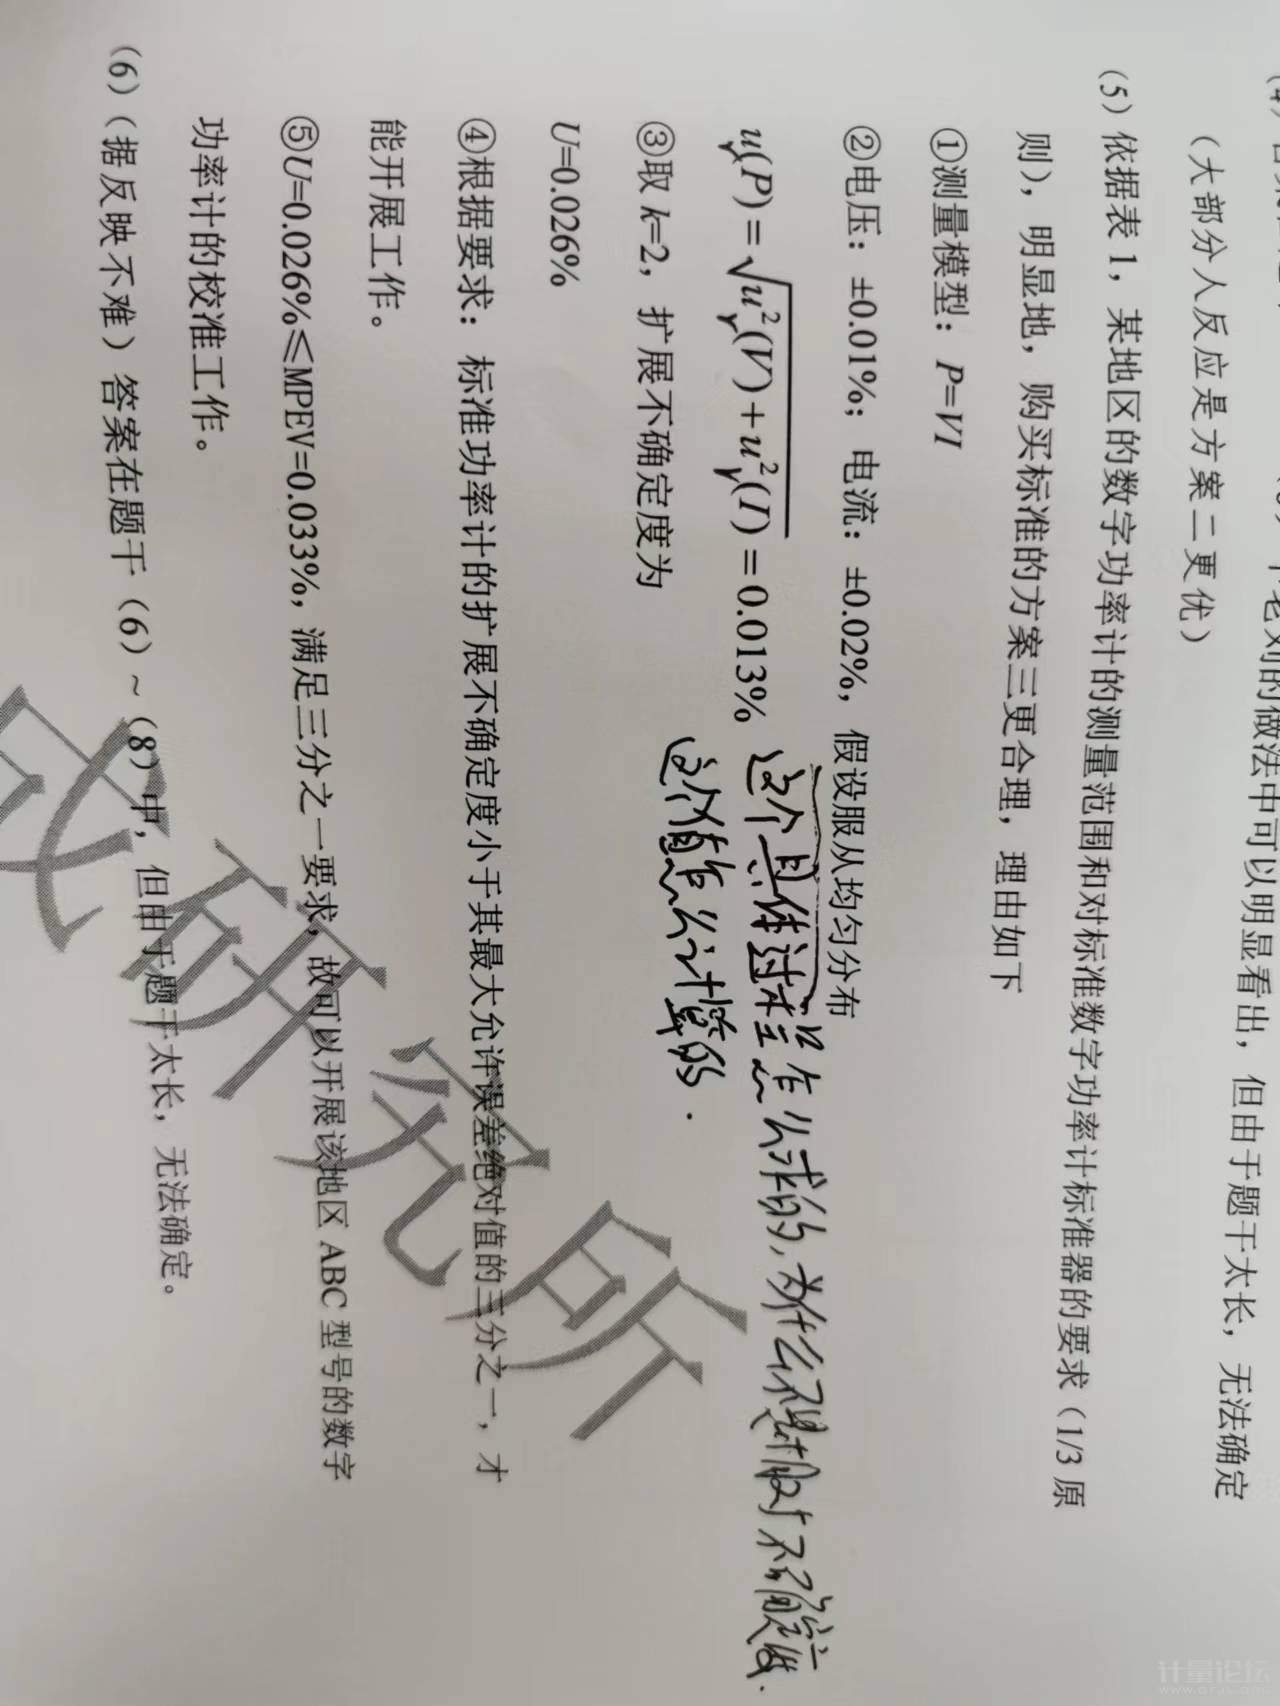 老刘的做法中可以明显看出，但由于题干太长，无法确定
（大部分人反应是方案二更优）
（5）依据表 1，某地区的数字功率计的测量范围和对标准数字功率计标准器的要求（1/3 原
则），明显地，购买标准的方案三更合理，理由如下
①测量模型：P=VI
②电压：±0.01%；电流：±0.02%，假设服从均匀分布
uᵣ(P) = √uᵣ²(V) + uᵣ²(I) = 0.013% 这个具体过程是怎么求的，为什么不是相对不确定度.
这个值怎么计算的.
③取 k=2，扩展不确定度为
U=0.026%
④根据要求：标准功率计的扩展不确定度小于其最大允许误差绝对值的三分之一，才
能开展工作。
⑤U=0.026%≤MPEV=0.033%，满足三分之一要求，故可以开展该地区 ABC 型号的数字
功率计的校准工作。
（6）（据反映不难）答案在题干（6）~（8）中，但由于题干太长，无法确定。
研究所
计量论坛